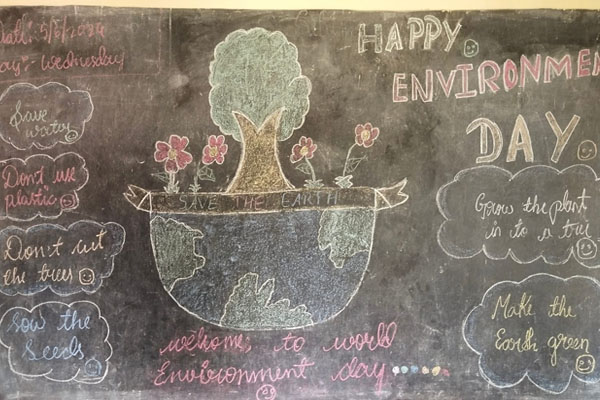 Date: 5/6/2024
Day:- Wednesday
HAPPY
ENVIRONMEN
DAY
Save
water
Don't use
plastic
Don't cut
the trees
Sow the
Seeds
SAVE THE EARTH
Grow the plant
in to a tree
Make the
Earth green
Welcome to world
Environment day